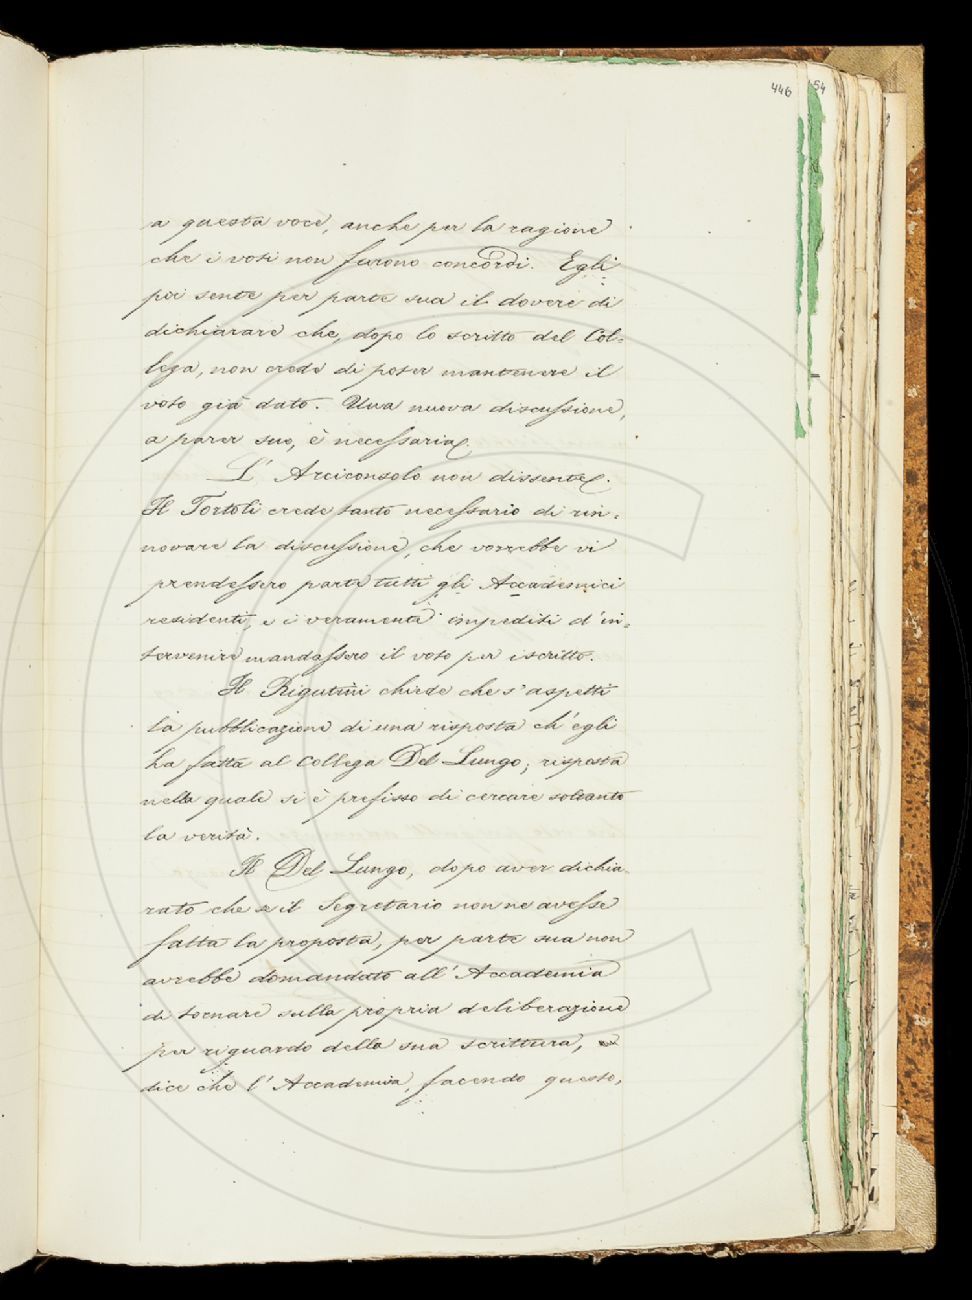 446
54
a questa voce, anche per la ragione
che i voti non furono concordi. Egli
poi sente per parte sua il dovere di
dichiarare che, dopo lo scritto del Col-
lega, non crede di poter mantenere il
voto già dato. Una nuova discussione,
a parer suo, è necessaria.
L'Arciconsolo non dissente.
Il Tortoli crede tanto necessario di rin-
novare la discussione, che vorrebbe vi
prendessero parte tutti gli Accademici
residenti, e i veramente impediti d'in-
tervenire mandassero il voto per iscritto.
Il Rigutini chiede che s'aspetti
la pubblicazione di una risposta ch'egli
ha fatta al Collega Del Lungo; risposta
nella quale si è prefisso di cercare soltanto
la verità.
Il Del Lungo, dopo aver dichia-
rato che se il Segretario non ne avesse
fatta la proposta, per parte sua non
avrebbe domandato all'Accademia
di tornare sulla propria deliberazione
per riguardo della sua scrittura,
dice che l'Accademia, facendo questo,